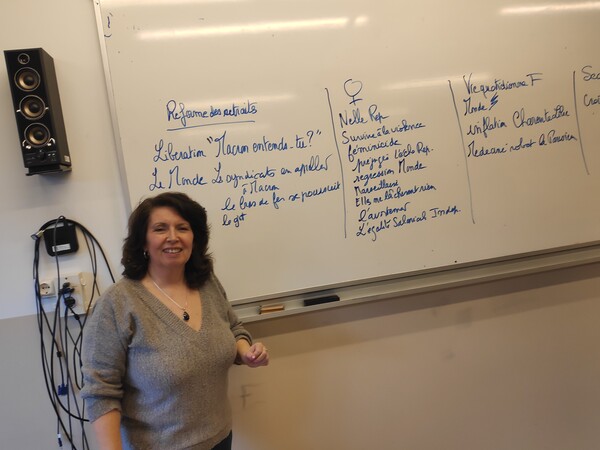 Réforme des retraits
Libération "Macron entends-tu?"
Le Monde Le syndicats en appeller
à Macron
le bras de fer se poursuit
Nelle Rep
Survivre à la violence
féminicide
préjugés l'écho Rep.
regression Monde
Marseillaise
Elles ne lâcheront rien
L'égalité Salariale Indep
Vie quotidienne F
Monde
inflation Charente libre
Médecine: robot Le Parisien